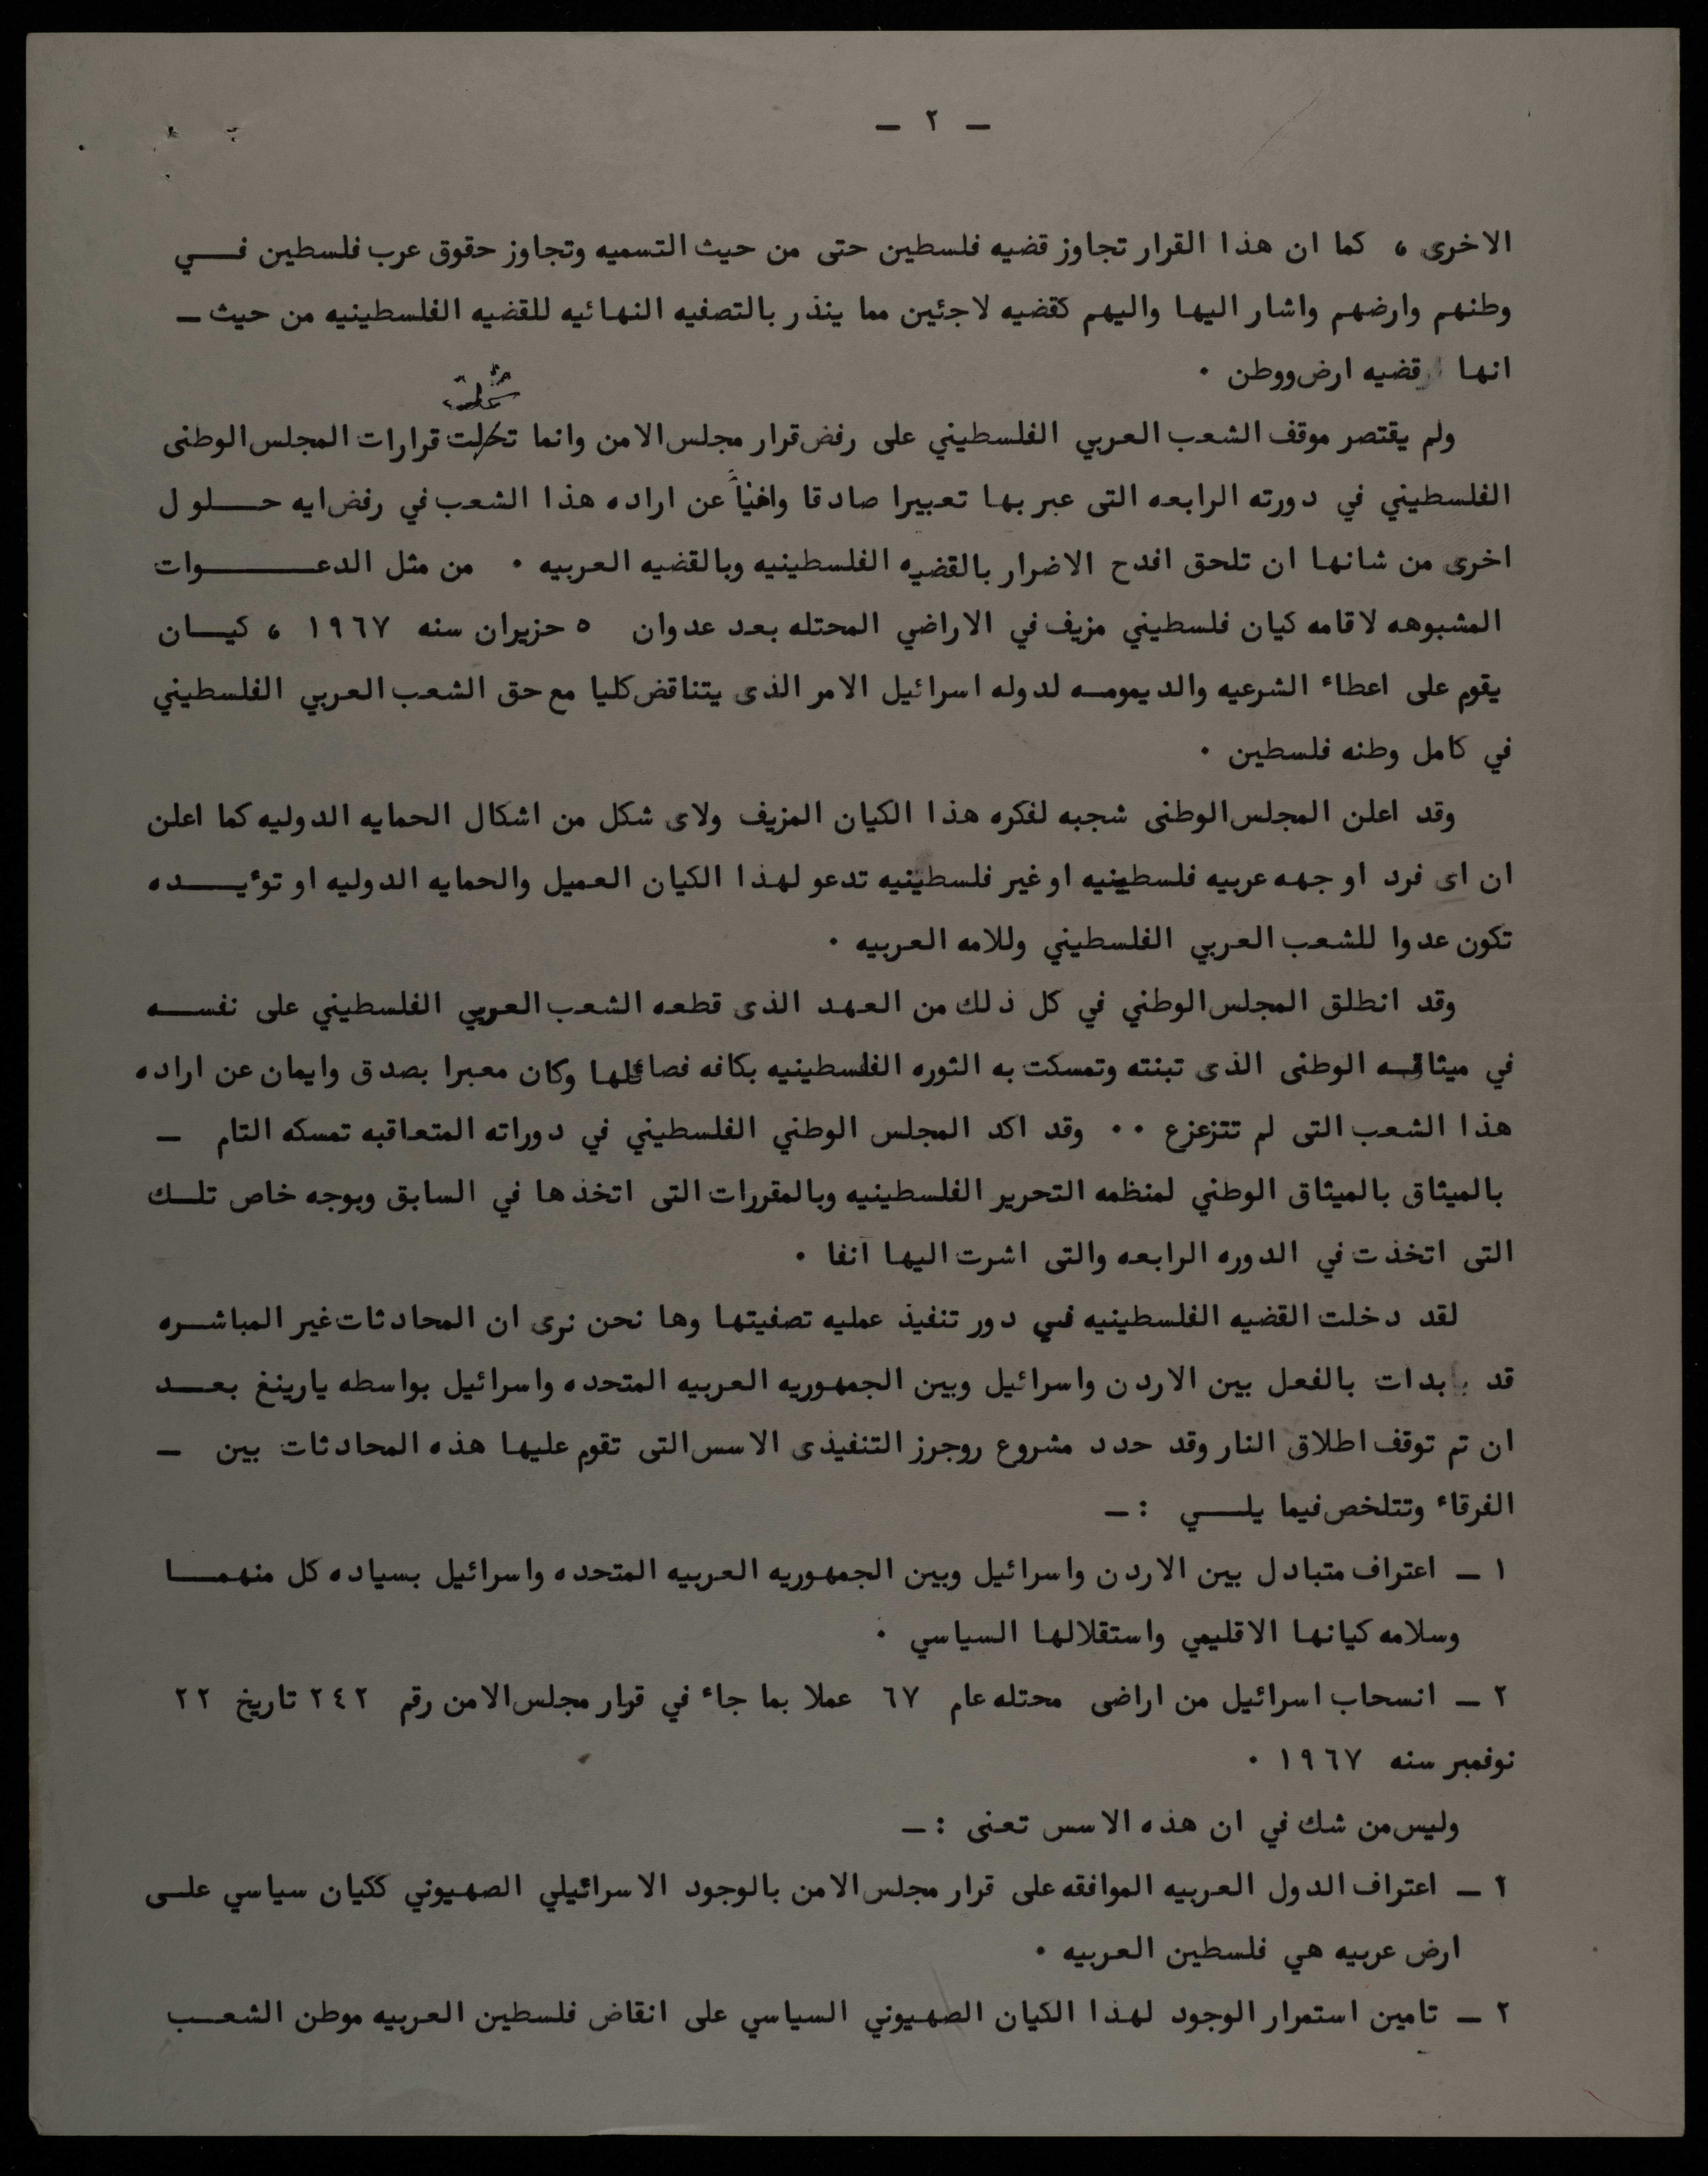 — ٢ —
الاخرى ، كما ان هذا القرار تجاوز قضيه فلسطين حتى من حيث التسميه وتجاوز حقوق عرب فلسطين فــي
وطنهم وارضهم واشار اليها واليهم كقضيه لاجئين مما ينذر بالتصفيه النهائيه للقضيه الفلسطينيه من حيث ـ
انها قضيه ارض ووطن ٠
شملت
ولم يقتصر موقف الشعب العربي الفلسطيني على رفض قرار مجلس الامن وانما قرارات المجلس الوطنى
الفلسطيني في دورته الرابعه التى عبر بها تعبيرا صادقا عن اراده هذا الشعب في رفض ايه حـــلول
اخرى من شانها ان تلحق افدح الاضرار بالقضيه الفلسطينيه وبالقضيه العربيه ٠ من مثل الدعــــــوات
المشبوهه لاقامه كيان فلسطيني مزيف في الاراضي المحتله بعد عدوان ٥ حزيران سنه ١٩٦٧ ، كيــان
يقوم على اعطاء الشرعيه والديمومــه لدوله اسرائيل الامر الذى يتناقض كليا مع حق الشعب العربي الفلسطيني
في كامل وطنه فلسطين ٠
وقد اعلن المجلس الوطنى شجبه لفكره هذا الكيان المزيف ولاى شكل من اشكال الحمايه الدوليه كما اعلن
ان اى فرد او جهه عربيه فلسطينيه او غير فلسطينيه تدعو لهذا الكيان العميل والحمايه الدوليه او توٴيـــده
تكون عدوا للشعب العربي الفلسطيني وللامه العربيه ٠
وقد انطلق المجلس الوطني في كل ذلك من العهد الذى قطعه الشعب العربي الفلسطيني على نفســه
في ميثاقــه الوطنى الذى تبنته وتمسكت به الثوره الفلسطينيه بكافه فصائلها وكان معبرا بصدق وايمان عن اراده
هذا الشعب التى لم تتزعزع ٠٠ وقد اكد المجلس الوطني الفلسطيني في دوراته المتعاقبه تمسكه التام ـ
بالميثاق بالميثاق الوطني لمنظمه التحرير الفلسطينيه وبالمقررات التى اتخذها في السابق وبوجه خاص تلــك
التى اتخذت في الدوره الرابعه والتى اشرت اليها آنفا ٠
لقد دخلت القضيه الفلسطينيه في دور تنفيذ عمليه تصفيتها وها نحن نرى ان المحادثات غير المباشــره
قد بدات بالفعل بين الاردن واسرائيل وبين الجمهوريه العربيه المتحده واسرائيل بواسطه يارينغ بعــد
ان تم توقف اطلاق النار وقد حدد مشروع روجرز التنفيذى الاسس التى تقوم عليها هذه المحادثات بين ـ
الفرقاء وتتلخص فيما يلــي :ـ
١ ـ اعتراف متبادل بين الاردن واسرائيل وبين الجمهوريه العربيه المتحده واسرائيل بسياده كل منهمــا
وسلامه كيانها الاقليمي واستقلالها السياسي ٠
٢ ـ انسحاب اسرائيل من اراضى محتله عام ٦٧ عملا بما جاء في قرار مجلس الامن رقم ٢٤٢ تاريخ ٢٢
نوفمبر سنه ١٩٦٧ ٠
وليس من شك في ان هذه الاسس تعنى :ـ
١ ـ اعتراف الدول العربيه الموافقه على قرار مجلس الامن بالوجود الاسرائيلي الصهيوني ككيان سياسي علــى
ارض عربيه هي فلسطين العربيه ٠
٢ ـ تامين استمرار الوجود لهذا الكيان الصهيوني السياسي على انقاض فلسطين العربيه موطن الشعــب